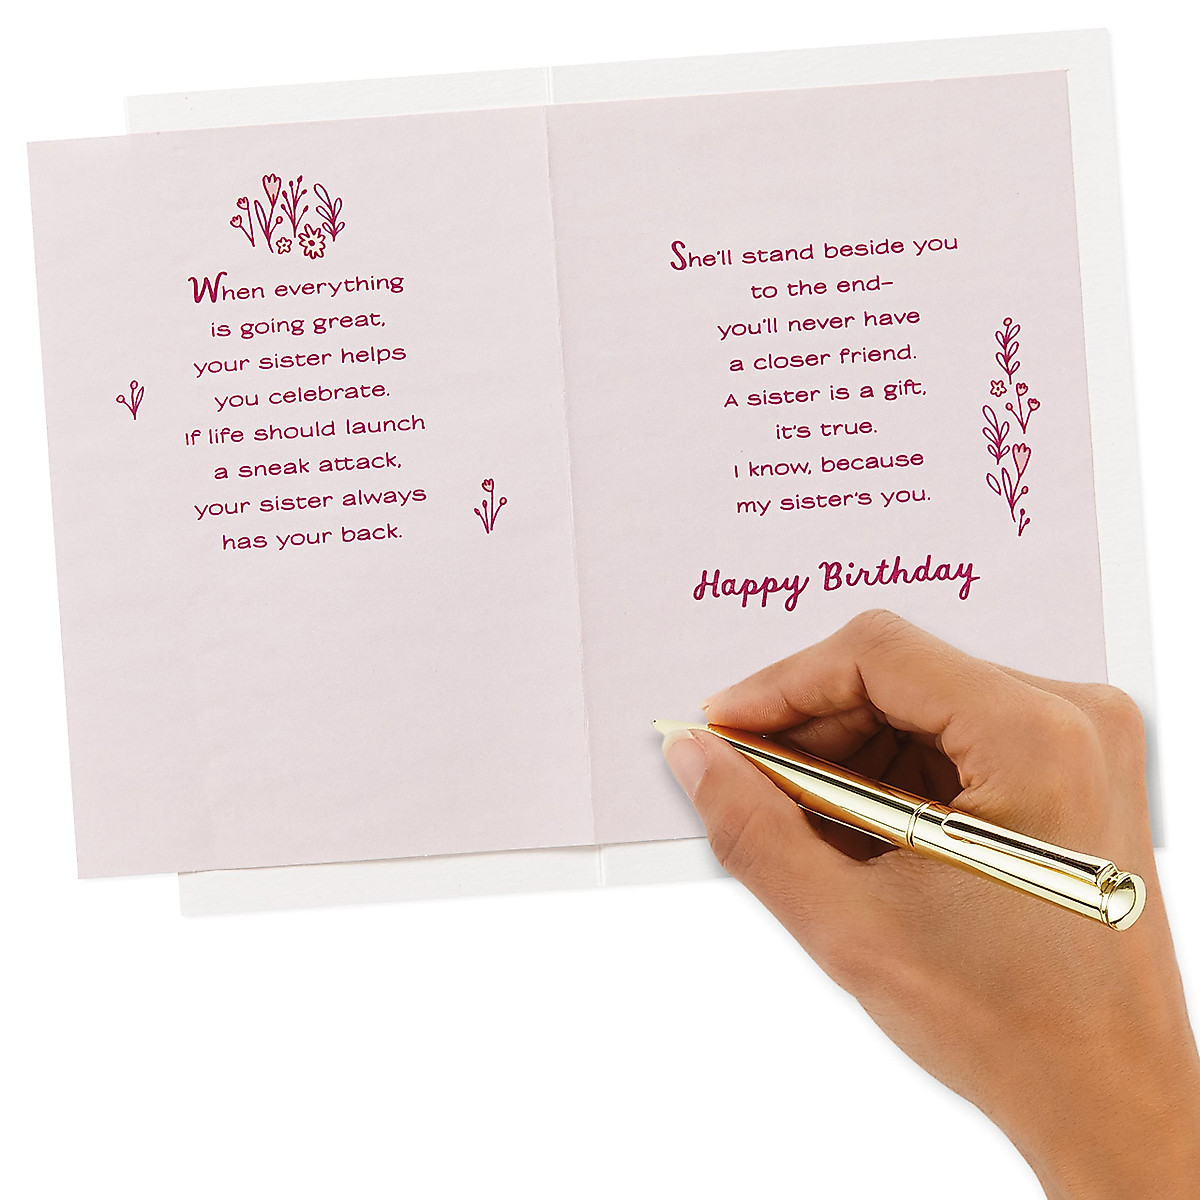 When everything
is going great,
your sister helps
you celebrate.
If life should launch
a sneak attack,
your sister always
has your back.
She'll stand beside you
to the end–
you'll never have
a closer friend.
A sister is a gift,
it's true.
I know, because
my sister's you.
Happy Birthday